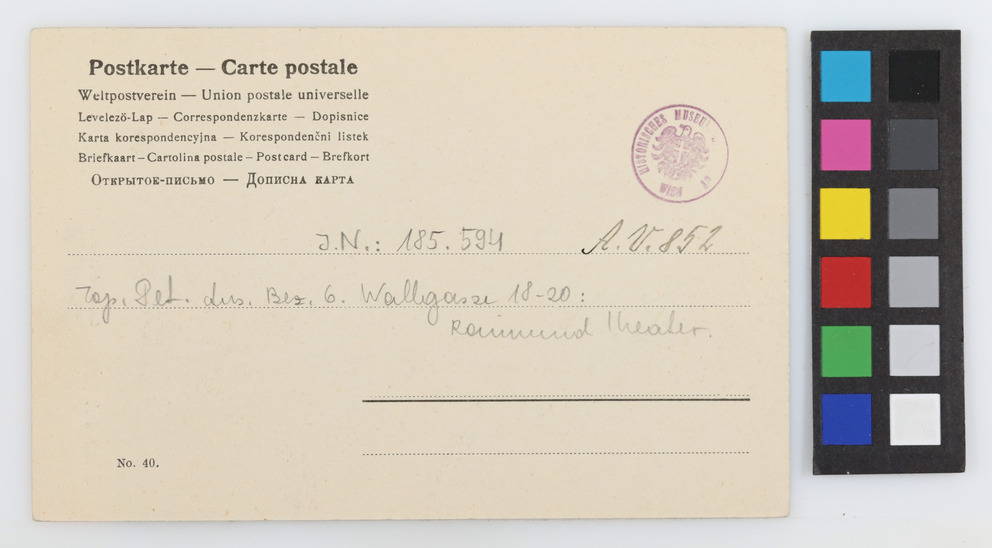 Postkarte — Carte postale
Weltpostverein — Union postale universelle
Levelező-Lap — Correspondenzkarte — Dopisnice
Karta korespondencyjna — Korespondenčni listek
Briefkaart – Cartolina postale – Postcard – Brefkort
Открытое-письмо — Дописна карта
HISTORISCHES MUSEUM
WIEN
J.N.: 185.594 A.V.852
Top. Bez. 6. Wallgasse 18-20:
Raimund Theater.
No. 40.